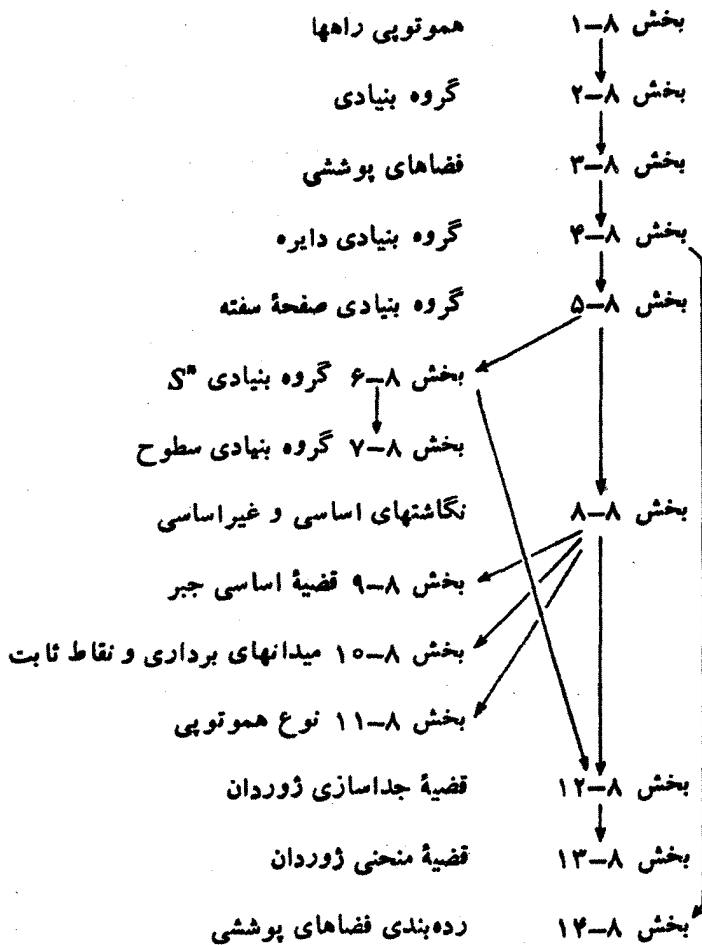 بخش ۸–۱ هموتوپی راهها
بخش ۸–۲ گروه بنیادی
بخش ۸–۳ فضاهای پوششی
بخش ۸–۴ گروه بنیادی دایره
بخش ۸–۵ گروه بنیادی صفحهٔ سفته
بخش ۸–۶ گروه بنیادی Sⁿ
بخش ۸–۷ گروه بنیادی سطوح
بخش ۸–۸ نگاشتهای اساسی و غیراساسی
بخش ۸–۹ قضیهٔ اساسی جبر
بخش ۸–۱۰ میدانهای برداری و نقاط ثابت
بخش ۸–۱۱ نوع هموتوپی
بخش ۸–۱۲ قضیهٔ جداسازی ژوردان
بخش ۸–۱۳ قضیهٔ منحنی ژوردان
بخش ۸–۱۴ رده‌بندی فضاهای پوششی